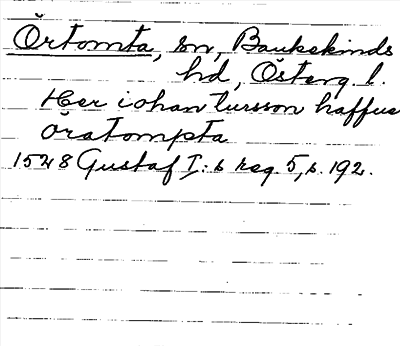 Örtomta, sn, Bankekinds
hd, Österg. l.
Her iohan tursson haffuer
öratompta
1528 Gustaf I:s reg. 5, s. 192.